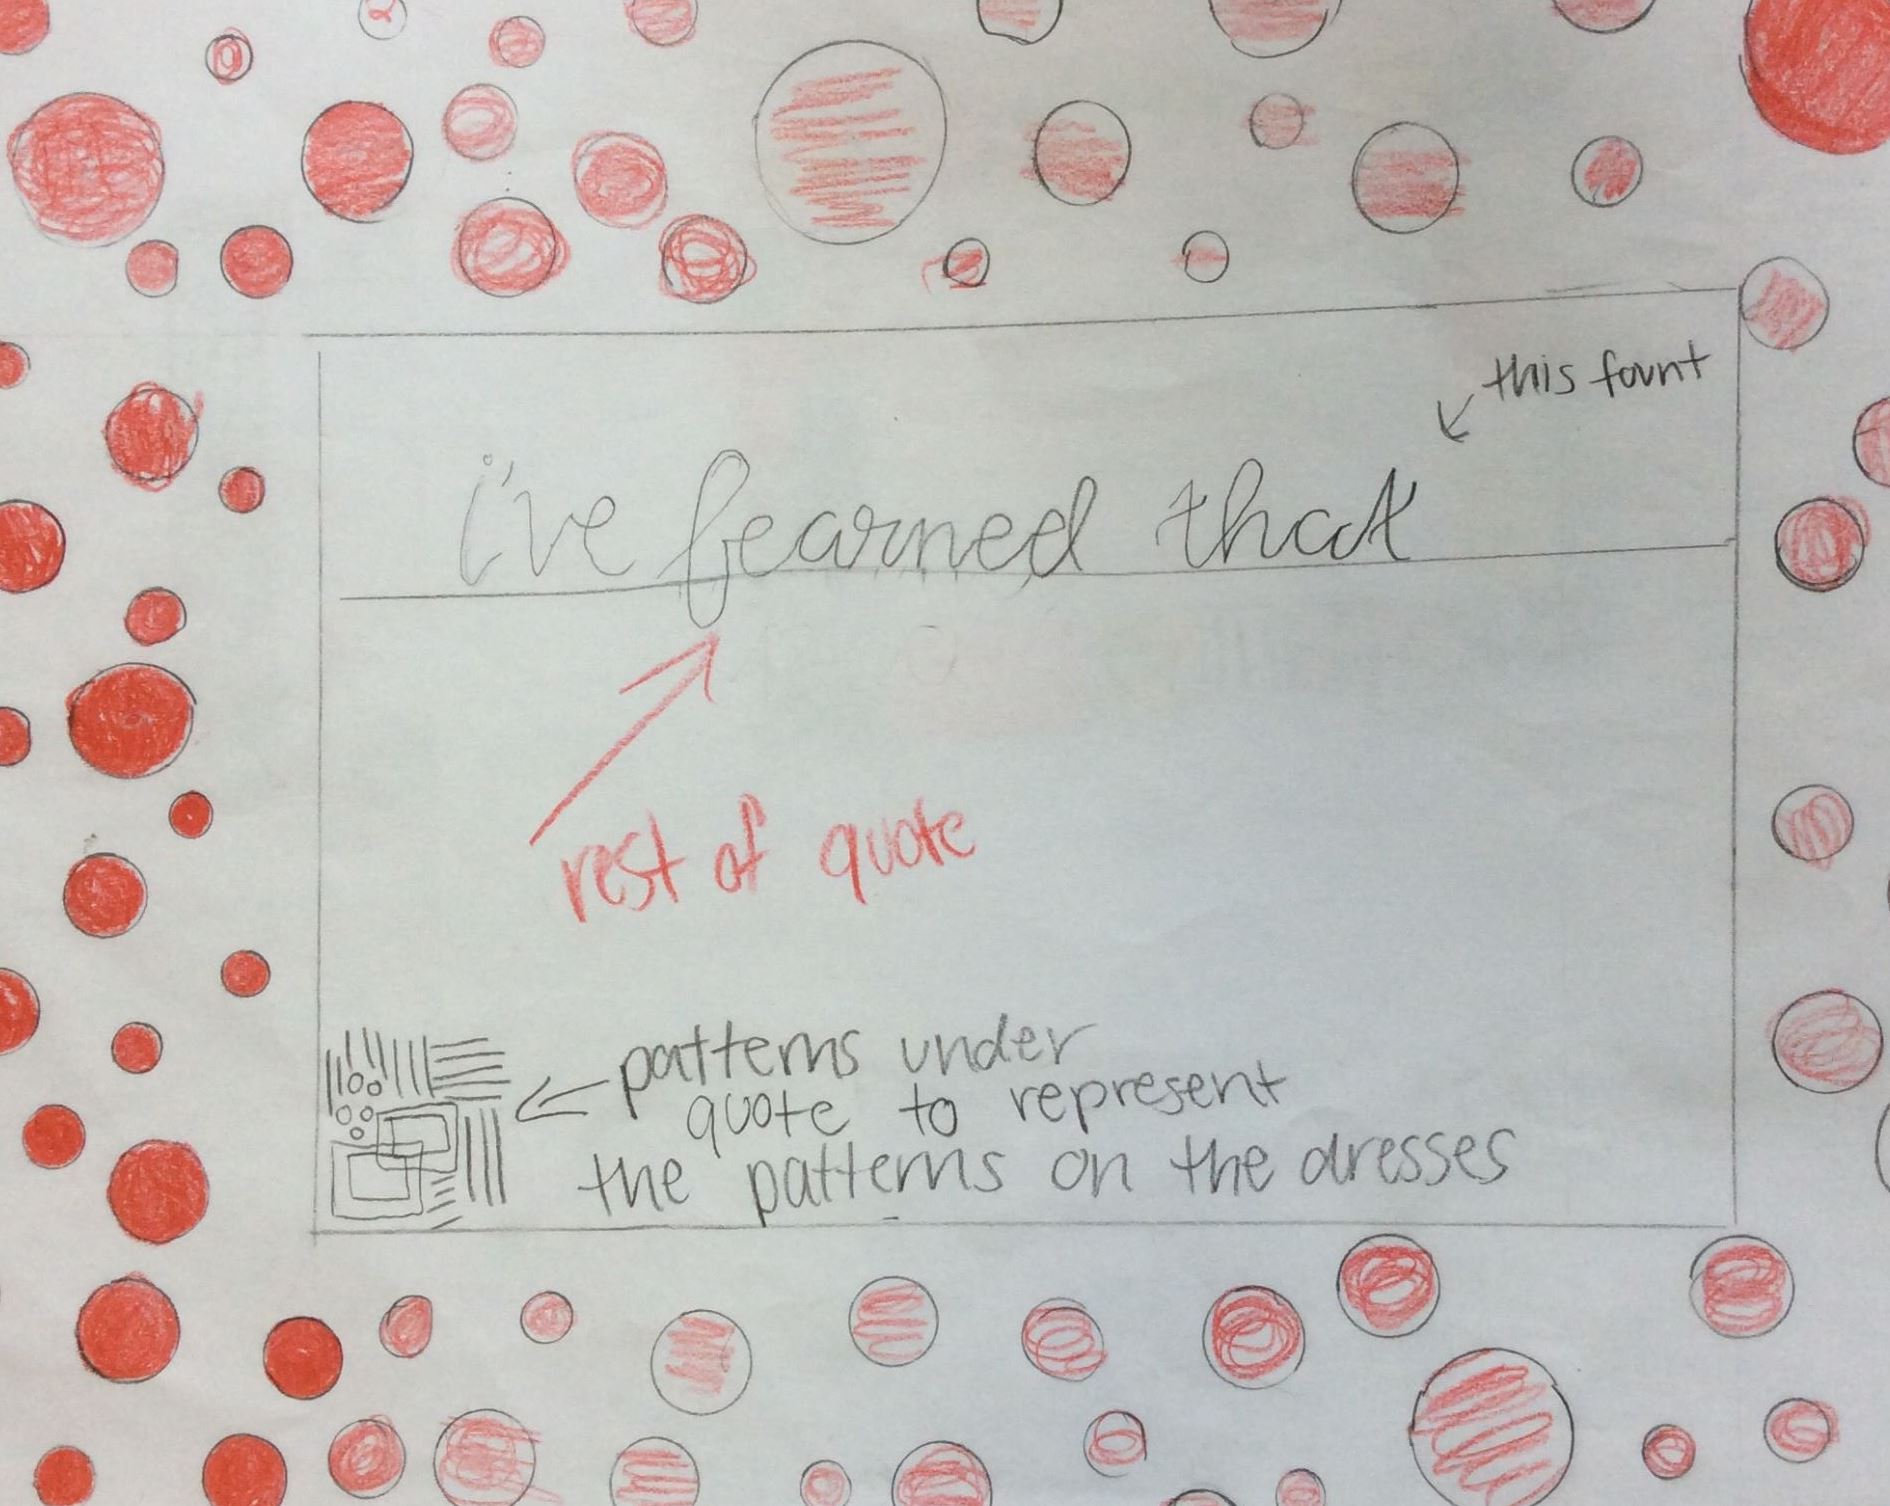 this fount
i've learned that
rest of quote
patterns under
quote to represent
the patterns on the dresses